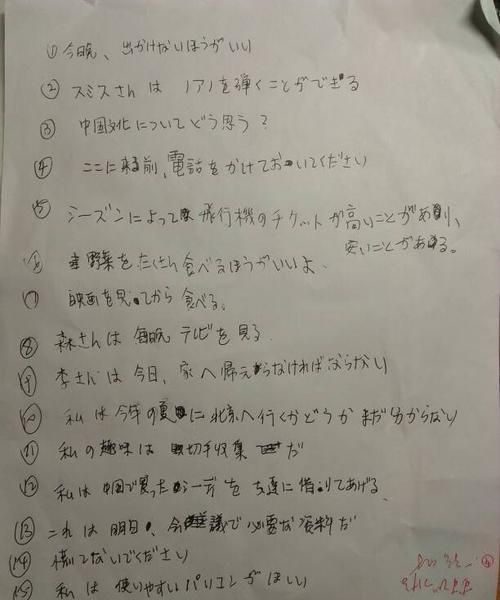 ① 今日晩、出かけないほうがいい
② スミスさんは ノアノを弾くことができる
③ 中国文化についてどう思う？
④ ここに来る前、電話をかけておいてください
⑤ シーズンによって飛行機のチケットが高いことがあり、
安いことがある。
⑥ 野菜をたくさん食べるほうがいいよ.
⑦ 映画を見てから食べる。
⑧ 森さんは毎晩テレビを見る
⑨ 李さんは今日、家へ帰えらなければならない
⑩ 私は今年の夏に北京へ行くかどうかまだ分からない
⑪ 私の趣味は 切手収集 だ
⑫ 私は中国で買った を友達に借りてあげる
⑬ これは明日、会議で必要な資料だ
⑭ てないでください
⑮ 私は使いやすいパソコンがほしい